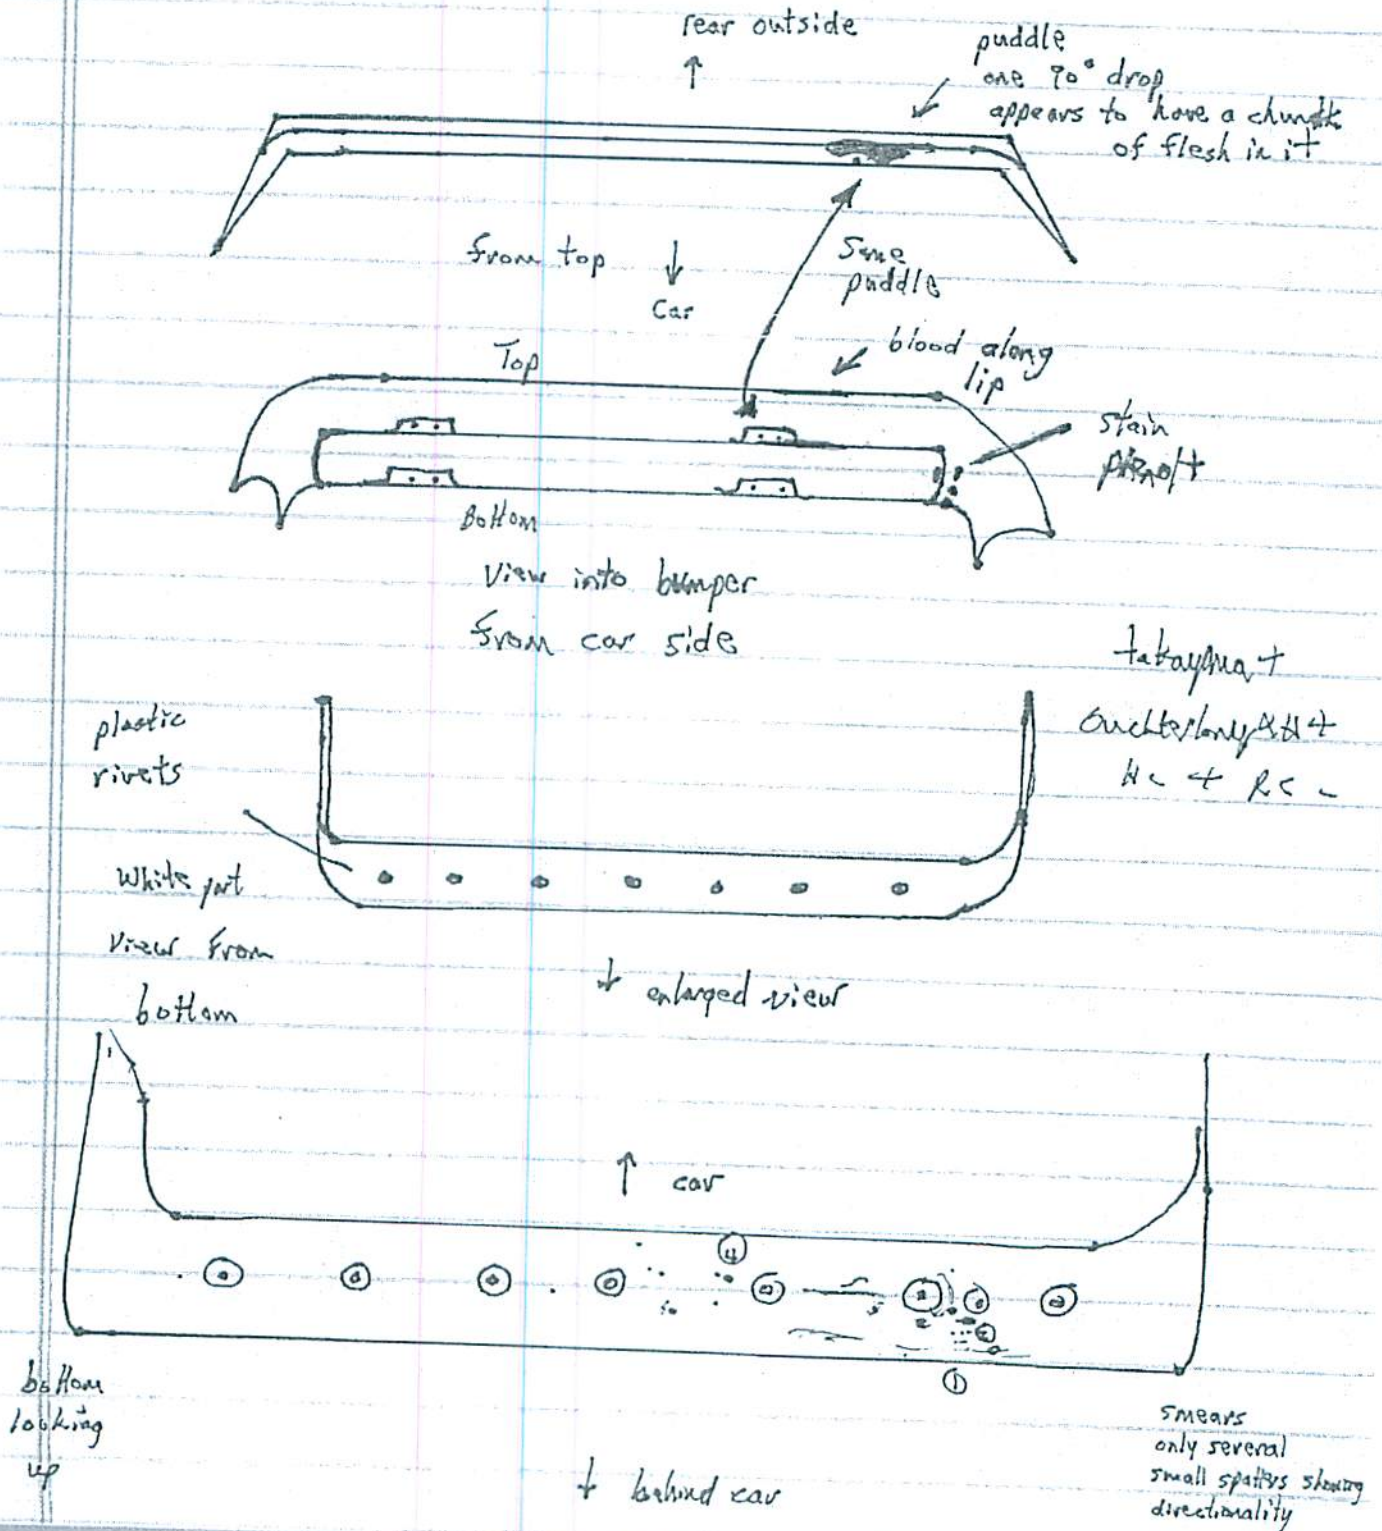 rear outside
puddle
one 90° drop
appears to have a chunk
of flesh in it
from top
car
same
puddle
Top
blood along
lip
stain
Bottom
View into bumper
from car side
takayama +
Ouchterlony
plastic
rivets
White part
View from
bottom
enlarged view
car
4
1
bottom
looking
up
smears
only several
small spatters showing
directionality
behind car